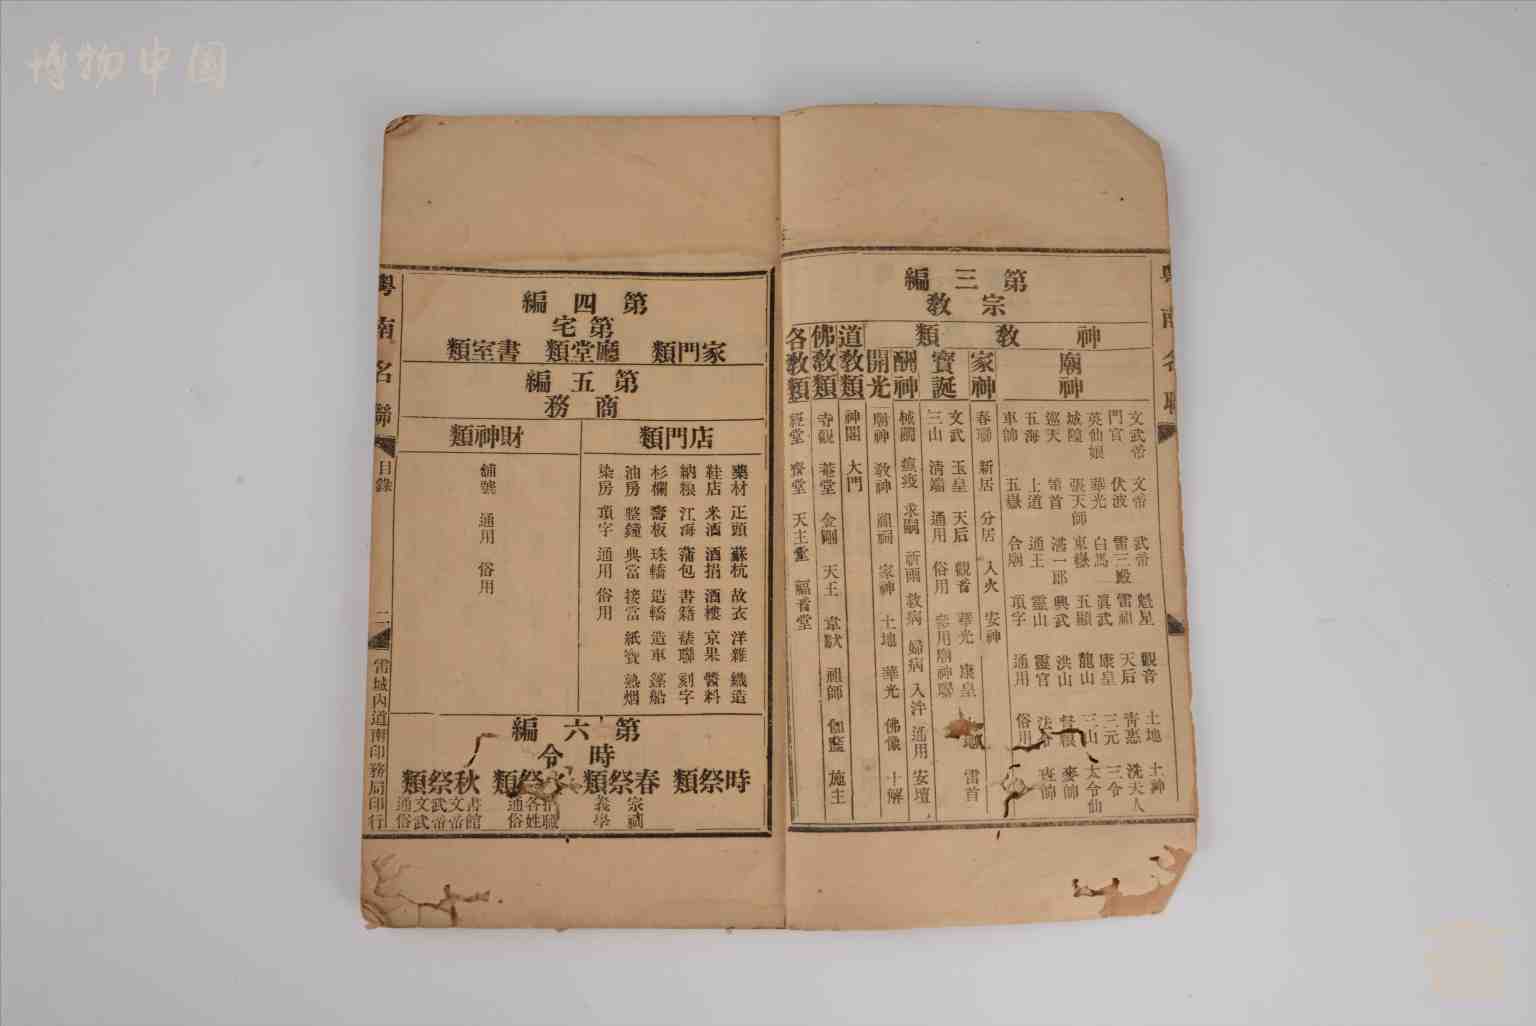 博物中国
第三編
宗教
神教類
廟神
文武帝 文帝 武帝 魁星 觀音 土地 土神
門官 伏波 雷三殿 雷祖 天后 青惠 洗天人
英仙娘 華光 白馬 真武 康皇 三元 三令
城隍 張天師 東嶽 五顯 龍山 三山 太令仙
巡天 第首 興武 洪山 督糧 麥帥
五海 上道 通王 靈山 靈官
車帥 五嶽 合廟 頂字 通用 俗用
家神
春聯 新居 分居 入火 安神
寶誕
文武 玉皇 天后 觀音 華光 康皇 雷首
三山 清端 通用 俗用 廟神聯
酬神
瘟疫 求嗣 祈雨 救病 婦病 入泮 通用 安壇
開光
廟神 教神 祖祠 家神 土地 華光 佛像
道教類
神閣 大門
佛教類
寺觀 菴堂 金剛 天王 韋馱 祖師 伽藍 施主
各教類
經堂 齋堂 天主堂 福音堂
第四編
第宅
家門類 廳堂類 書室類
第五編
商務
店門類
藥材 疋頭 蘇杭 故衣 洋雜 織造
鞋店 米酒 酒捐 酒樓 京果 醬料
納粮 江海 蒲包 書籍 裱聯 刻字
杉欄 壽板 珠轎 造轎 造車 篷船
油房 整鐘 典當 接當 紙寳 熟烟
染房 頂字 通用 俗用
財神類
舖號 通用 俗用
第六編
時令
時祭類 春祭類 祭類 秋祭類
宗祠 義學
各姓 通俗
書館 文帝 武帝 文武 通俗
粵南名聯
目錄
二
雷城內道南印務局印行